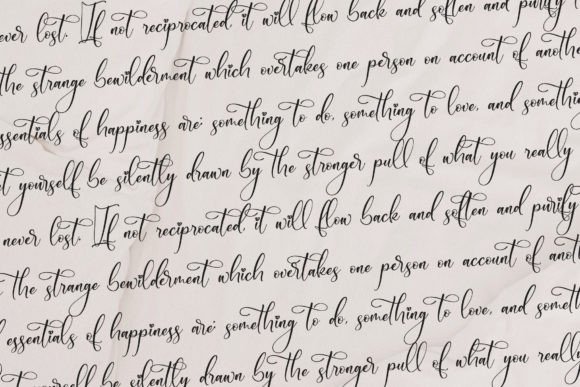 never lost. If not reciprocated it will flow back and soften and purify
the strange bewilderment which overtakes one person on account of anothe
essentials of happiness are: something to do, something to love, and somethi
yourself be silently drawn by the stronger pull of what you really
never lost. If not reciprocated it will flow back and soften and purify
the strange bewilderment which overtakes one person on account of anot
essentials of happiness are: something to do, something to love, and someth
yourself be silently drawn by the stronger pull of what you really